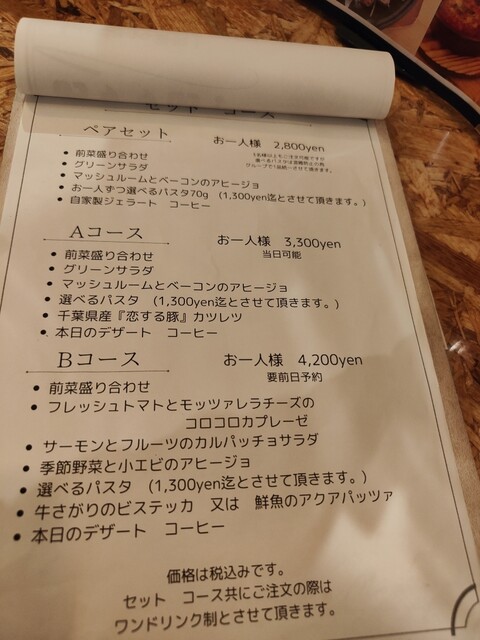 セット コース
ペアセット お一人様 2,800yen
• 前菜盛り合わせ
• グリーンサラダ
• マッシュルームとベーコンのアヒージョ
• お一人ずつ選べるパスタ70g (1,300yen迄とさせて頂きます。)
• 自家製ジェラート コーヒー
Aコース お一人様 3,300yen
当日可能
• 前菜盛り合わせ
• グリーンサラダ
• マッシュルームとベーコンのアヒージョ
• 選べるパスタ (1,300yen迄とさせて頂きます。)
• 千葉県産『恋する豚』カツレツ
• 本日のデザート コーヒー
Bコース お一人様 4,200yen
要前日予約
• 前菜盛り合わせ
• フレッシュトマトとモッツァレラチーズの
コロコロカプレーゼ
• サーモンとフルーツのカルパッチョサラダ
• 季節野菜と小エビのアヒージョ
• 選べるパスタ (1,300yen迄とさせて頂きます。)
• 牛さがりのビステッカ 又は 鮮魚のアクアパッツァ
• 本日のデザート コーヒー
価格は税込みです。
セット コース共にご注文の際は
ワンドリンク制とさせて頂きます。